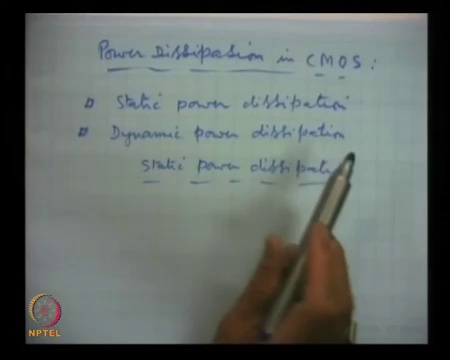 Power Dissipation in CMOS :
Static power dissipation
Dynamic power dissipation
Static power dissipati
NPTEL